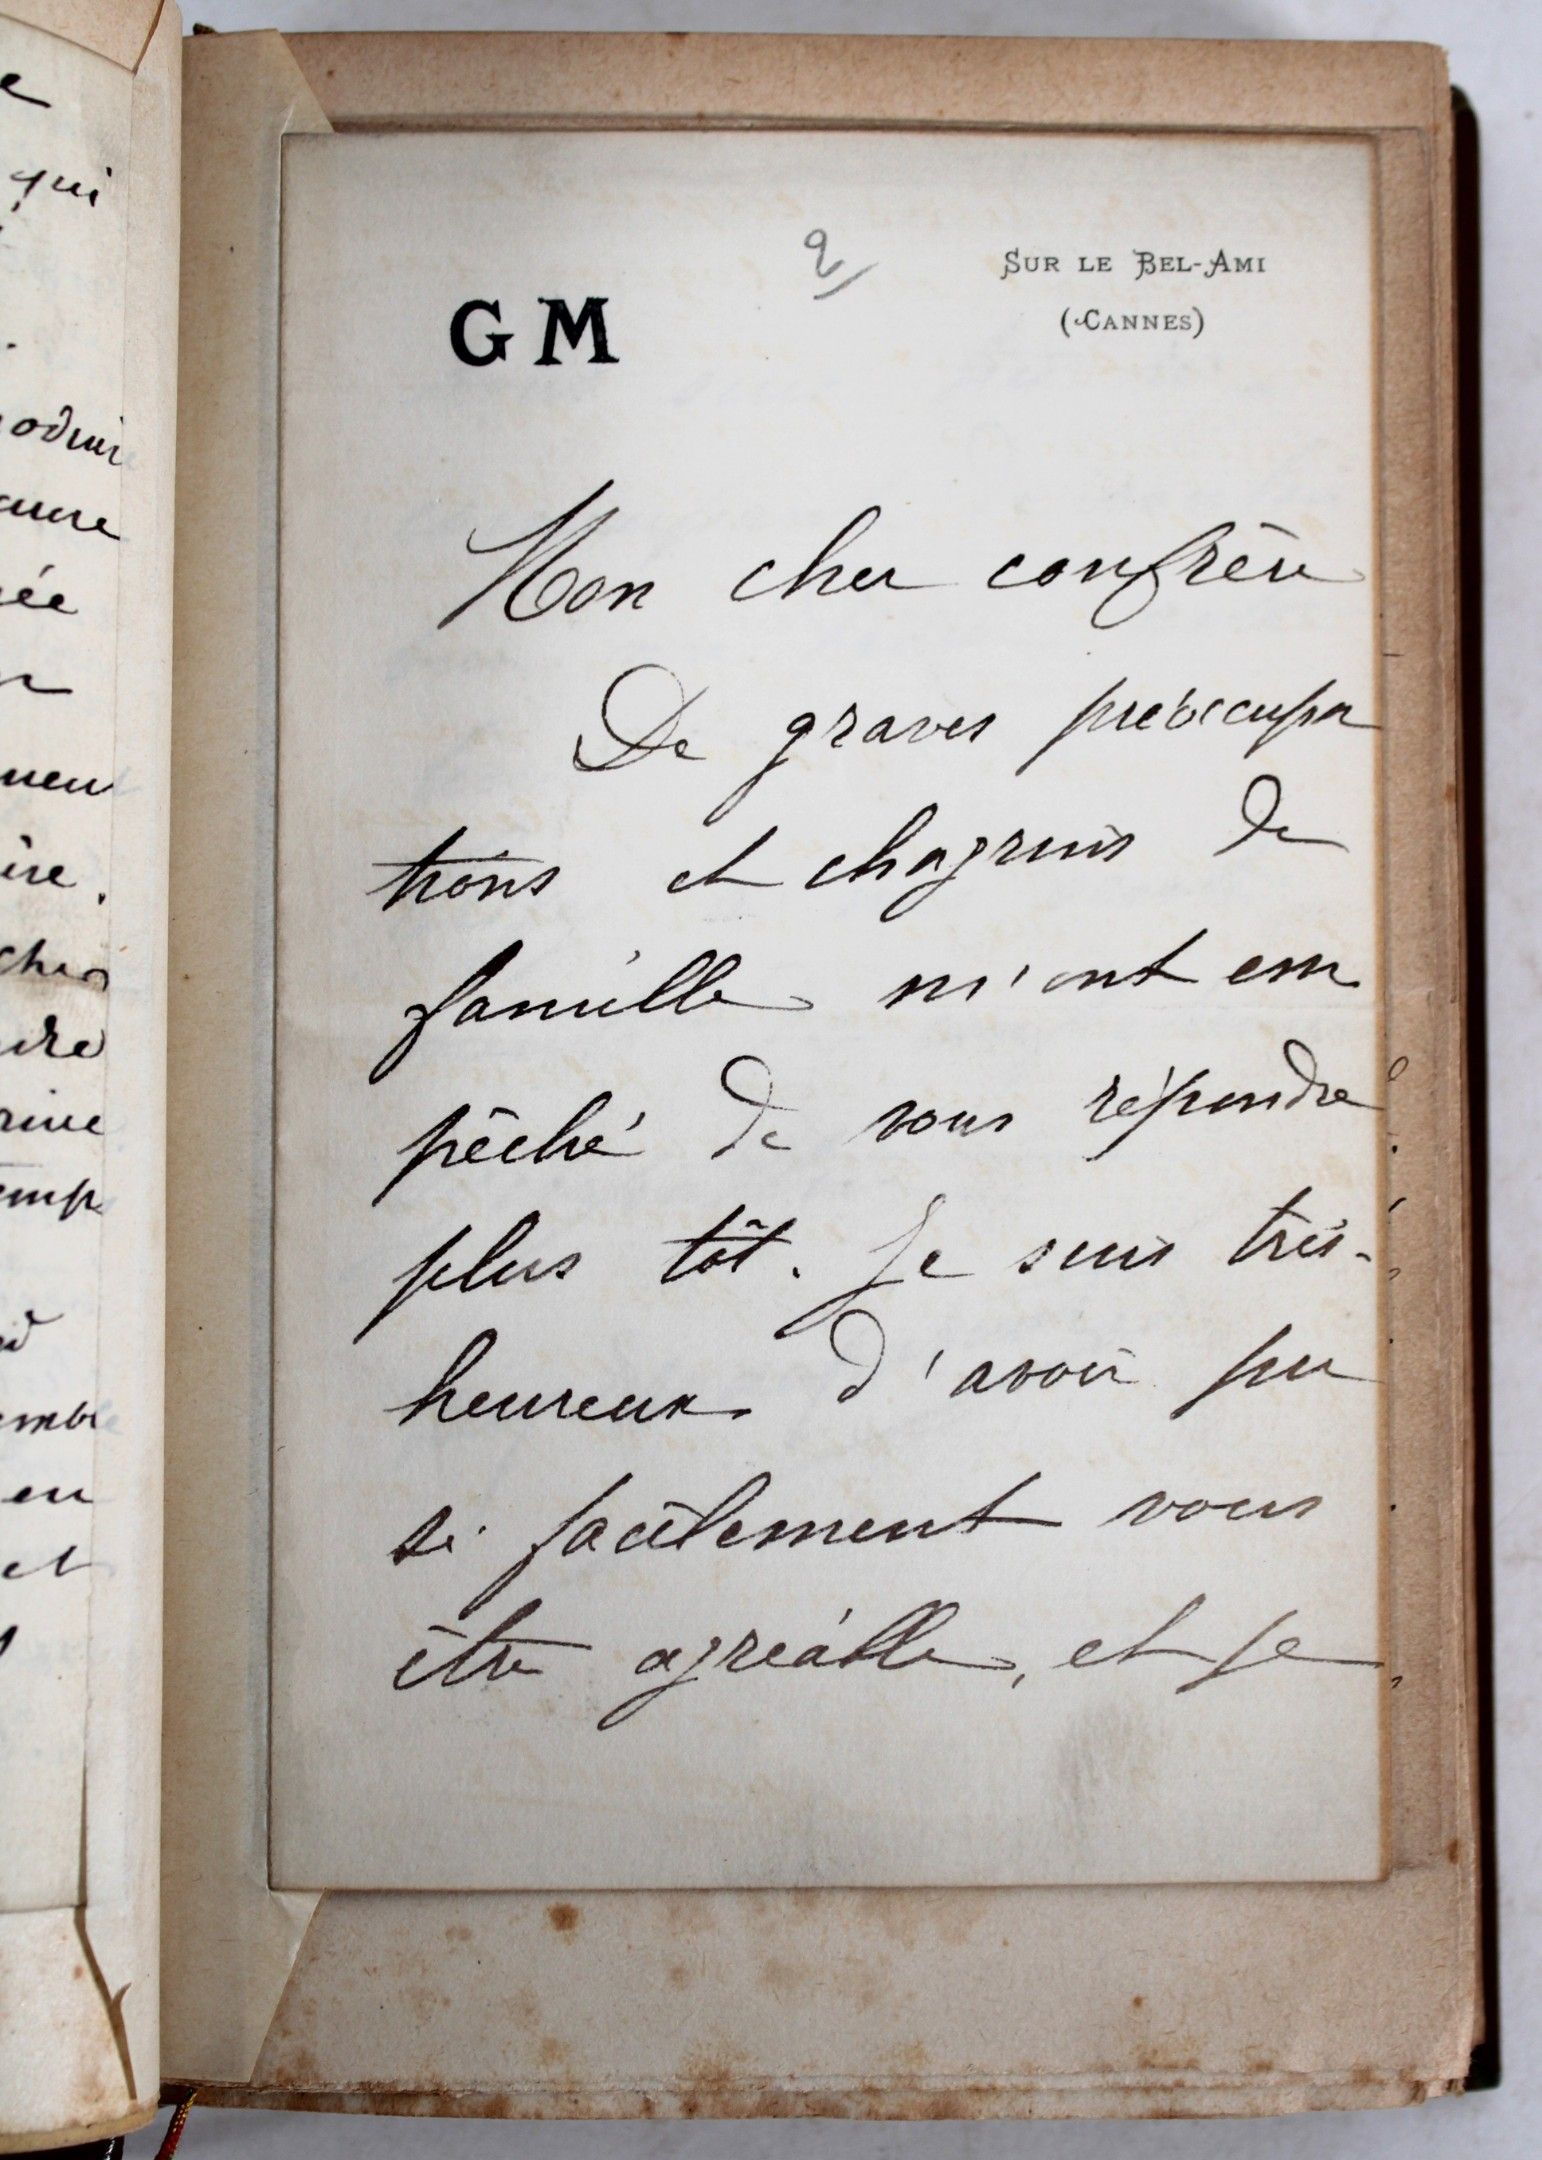 e
qui
GM
2
SUR LE BEL-AMI
(CANNES)
Mon cher confrère
De graves préoccupa
tions et chagrins de
famille m'ont em
pêché de vous répondre
plus tôt. Je suis très-
heureux d'avoir pu
si facilement vous
être agréable, et je
ée
cher
en
et